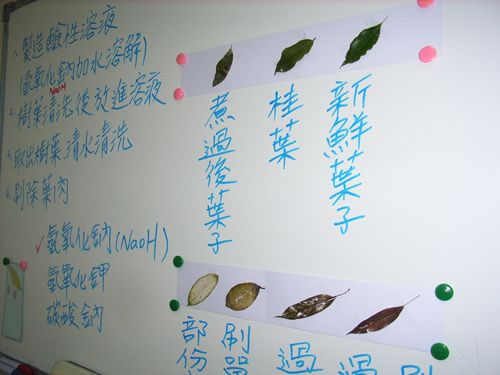 1. 製造鹼性溶液
(氫氧化鈉加水溶解)
NaOH
2. 樹葉清洗後放進溶液
3. 取出樹葉清水清洗
4. 刷除葉肉
✓ 氫氧化鈉(NaoH)
氫氧化鉀
碳酸鈉
新鮮葉子
桂葉
煮過後葉子
過
刷
部份